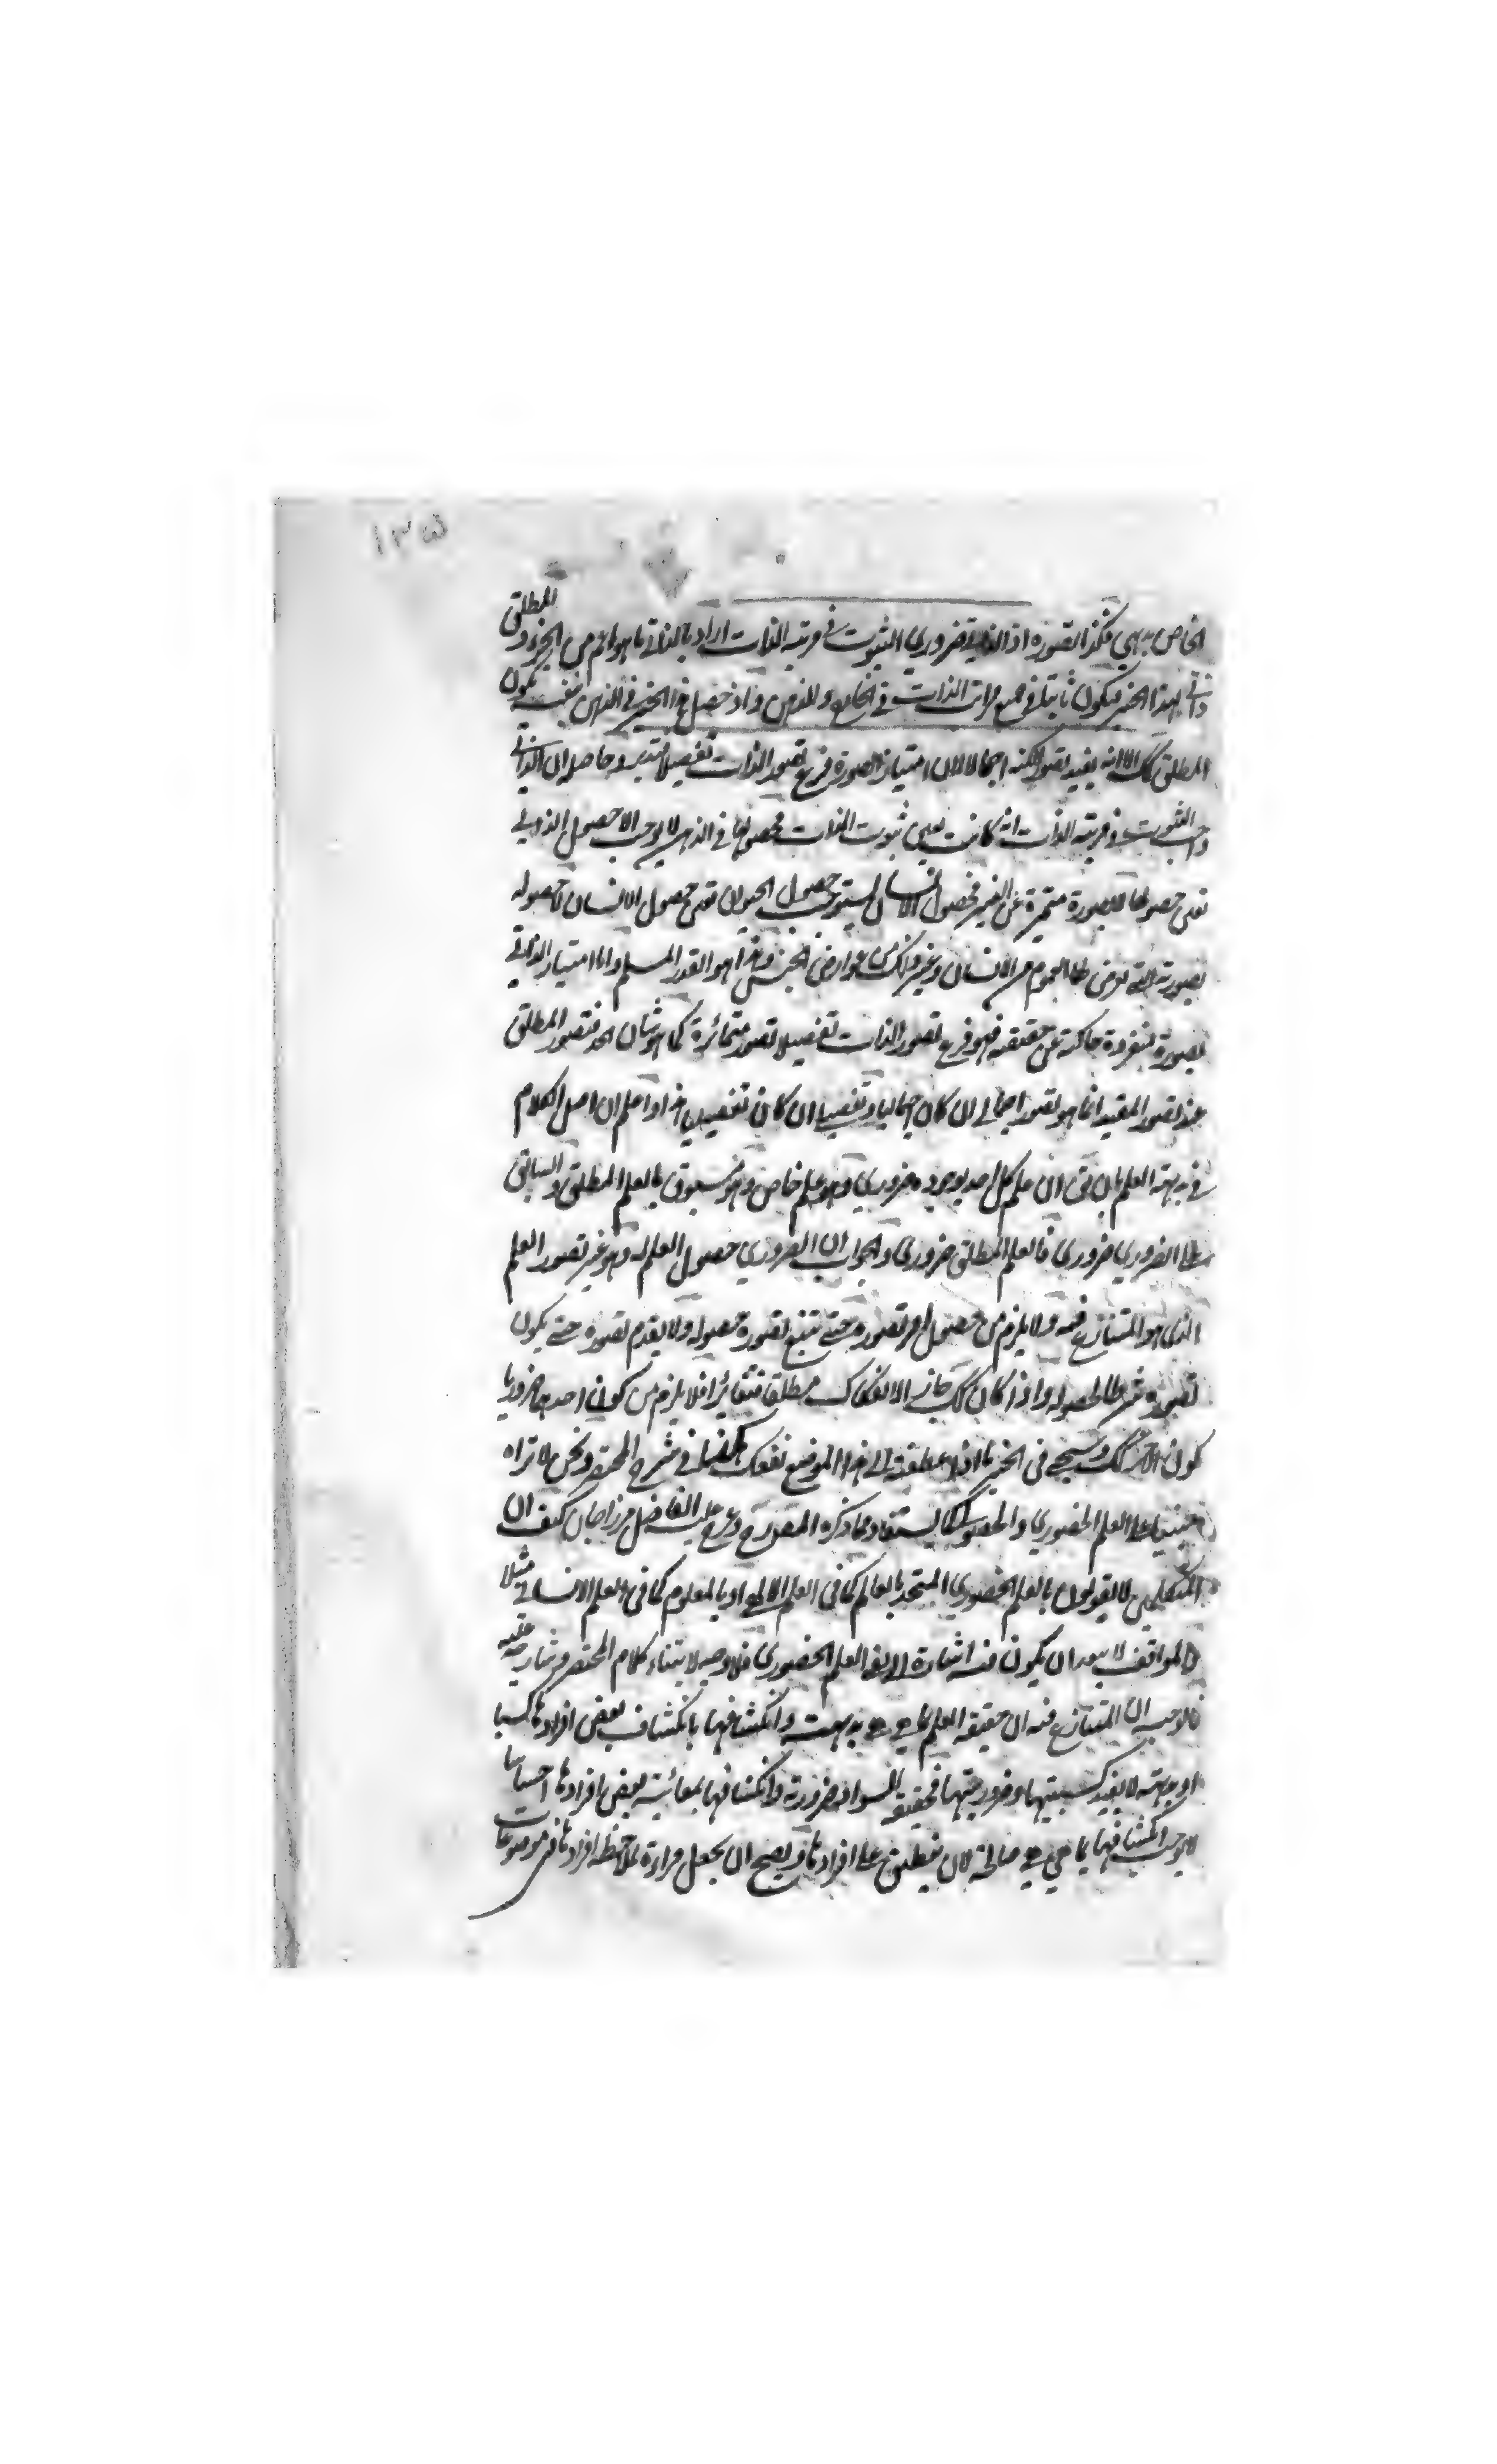 ١٣٥
الخاص بديهي فكذا تصوره اذ الذاتي ضروري الثبوت في مرتبة الذات اراد بالذاتي ما هو اعم من الجزء و المطلق
ذاتي لهذا الخبر فيكون ثابتا في جميع مراتب الذات في الخارج والذهن واذ حصل هذا الخبر في الذهن بنفسه يكون
المطلق كك الا انه يفيد تصور الكنه اجمالا لان امتياز الصورة فرع تصور الذات تفصيلا فتدبر وحاصله ان الذاتي
واجب الثبوت في مرتبة الذات اية كانت يعني ثبوت الذات فحصولها في الذهن لا يوجب الا حصول الذاتي
نعني حصولها لا بصورة متميزة عن الغير فحصول الانسان يستوجب حصول الحيوان نعني حصول الانسان لا حصوله
بصورته التي تعرض لها العموم من الانسان وغير ذلك من عوارض الجنس وهذا هو القدر المسلم واما امتياز الذاتي
بصورة منفردة حاكية عن حقيقته فهو فرع تصور الذات تفصيلا تصور متمائزة كما هو شان الحد فتصور المطلق
عند تصور المقيد انما هو تصور اجمالي ان كان اجماليا وتفصيلي ان كان تفصيليا هذا واعلم ان اصل الكلام
في بديهة العلم بان يق ان علم كل احد بوجوده ضروري وهو علم خاص وهو مسبوق بالعلم المطلق والسابق
على الضروري ضروري فالعلم المطلق ضروري والجواب ان الضروري حصول العلم له وهو غير تصور العلم
الذي هو المتنازع فيه ولا يلزم من حصول امر تصوره حتى يتبع تصوره حصوله ولا تقدم تصوره حتى يكون
تصوره شرطا لحصوله واذا كان كك جاز الانفكاك مطلقا فتغائرا فلا يلزم من كون احدهما ضروريا
كون الاخر كك وسيجيء في الخبر ما اذا عطفته الى هذا الموضع نفعك كذا في شرح المختصر ونحن لا نراه
مبنيا على العلم الحضوري والحصولي كما يستفاد مما ذكره المص رح وعرج عليه الفاضل مرزا جان كيف ان
المتكلمين لا يقولون بالعلم الحضوري المتحد بالعالم كما في العلم الالهي او بالمعلوم كما في العلم الانساني مثلا
والمواقف لا يبعد ان يكون فيه اشارة الى نفي العلم الحضوري فلا وجه لابتناء كلام المختصر وشارحه عليه
فالوجه ان المتنازع فيه ان حقيقة العلم بما هي هي بديهية وانكشافها بانكشاف بعض افرادها كسبا
او بديهة لا يفيد كسبيتها وضروريتها فحقيقة السواد ضرورية وانكشافها بمعائنة بعض افرادها احساسا
لا يوجب انكشافها بما هي هي صالحة لان ينطبق على افرادها ويصح ان يجعل مراءة لملاحظة افرادها في موضوعات